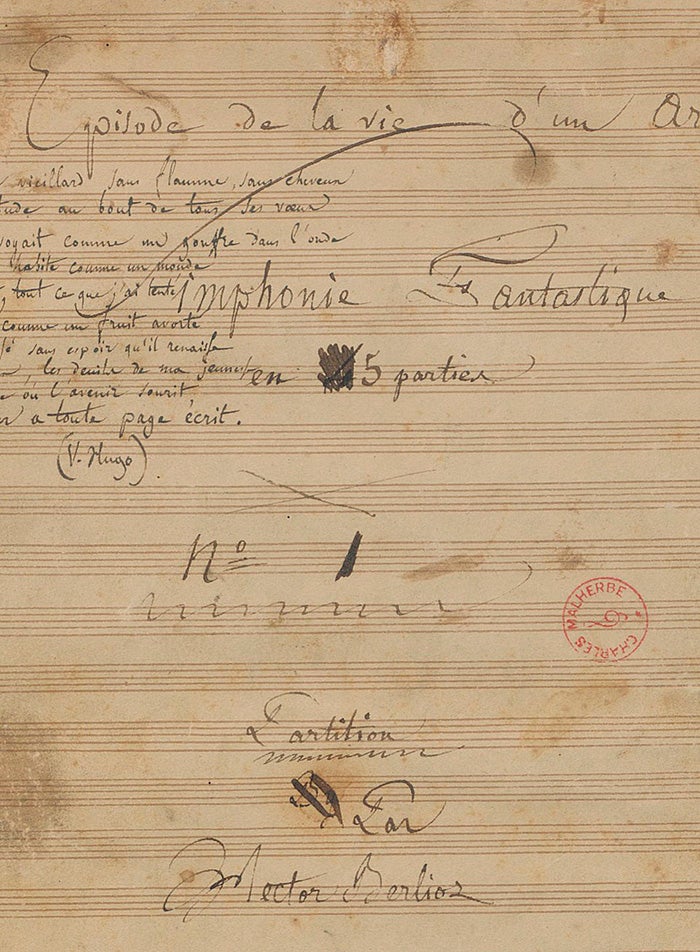 Episode de la vie d'un Ar
vieillard sans flamme, sans cheveux
tude au bout de tous ses vœux
voyait comme un gouffre dans l'onde
habite comme un monde
, tout ce que j'ai tenté
comme un fruit avorté
sé sans espoir qu'il renaisse
les deuils de ma jeunesse
e où l'avenir sourit,
r a toute page écrit.
(V. Hugo)
Simphonie Fantastique
en 5 parties
No 1
Partition
Par
Hector Berlioz
CHARLES MALHERBE